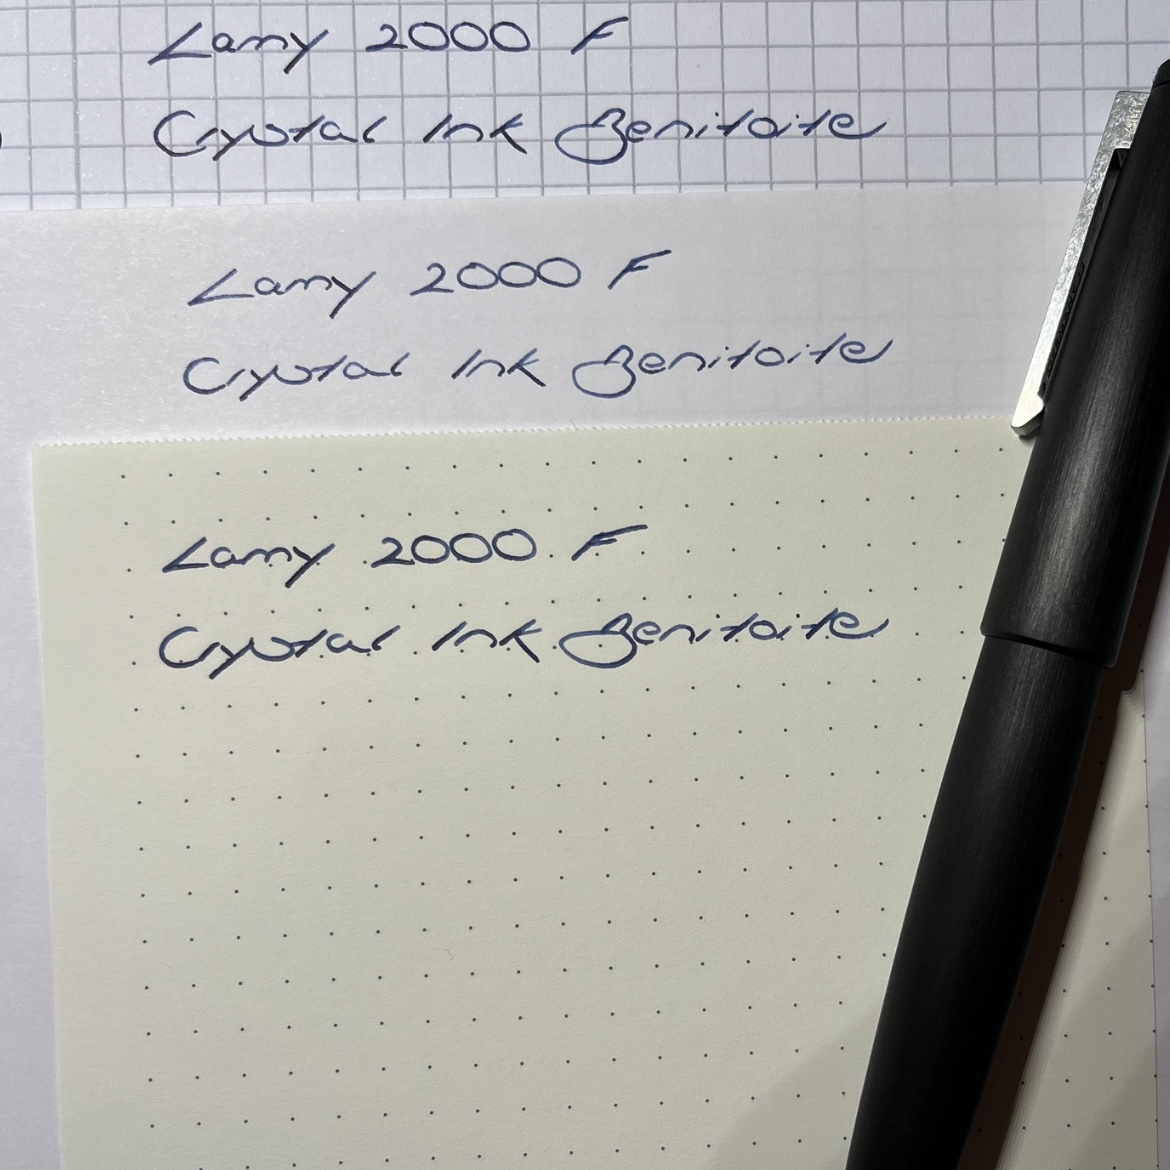 Lamy 2000 F
Crystal Ink Benitoite
Lamy 2000 F
Crystal Ink Benitoite
Lamy 2000 F
Crystal Ink Benitoite